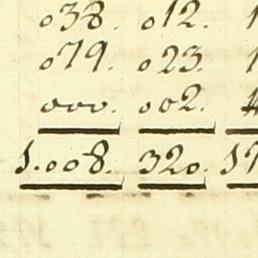 038. 012. 1
079. 023. 1
000. 002.
1.008. 320. 17